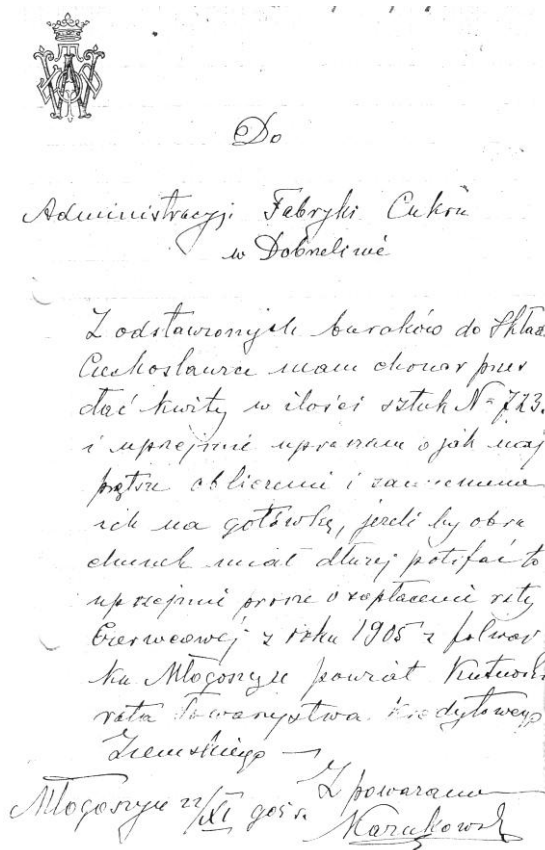 Do
Administracyi Fabryki Cukru
w Dobrzelinie
Z odstawionych buraków do Skład
mam chonor przes
dać kwity w ilości sztuk № 723.
i uprzejmie upraszam o jak naj
prętsze obliczenie i zamienienie
ich na gotówkę, jeżeli by obra
chunek miał dłużej potrfać to
uprzejmie prosze o zapłacenie raty
Czerwcowej z roku 1905 z folwar
ku Młogoszyn powiat Kutnowski
rata Towarzystwa Kredytowego
Ziemskiego —
Z powazaniem
Młogoszyn 22/XI 905 r.